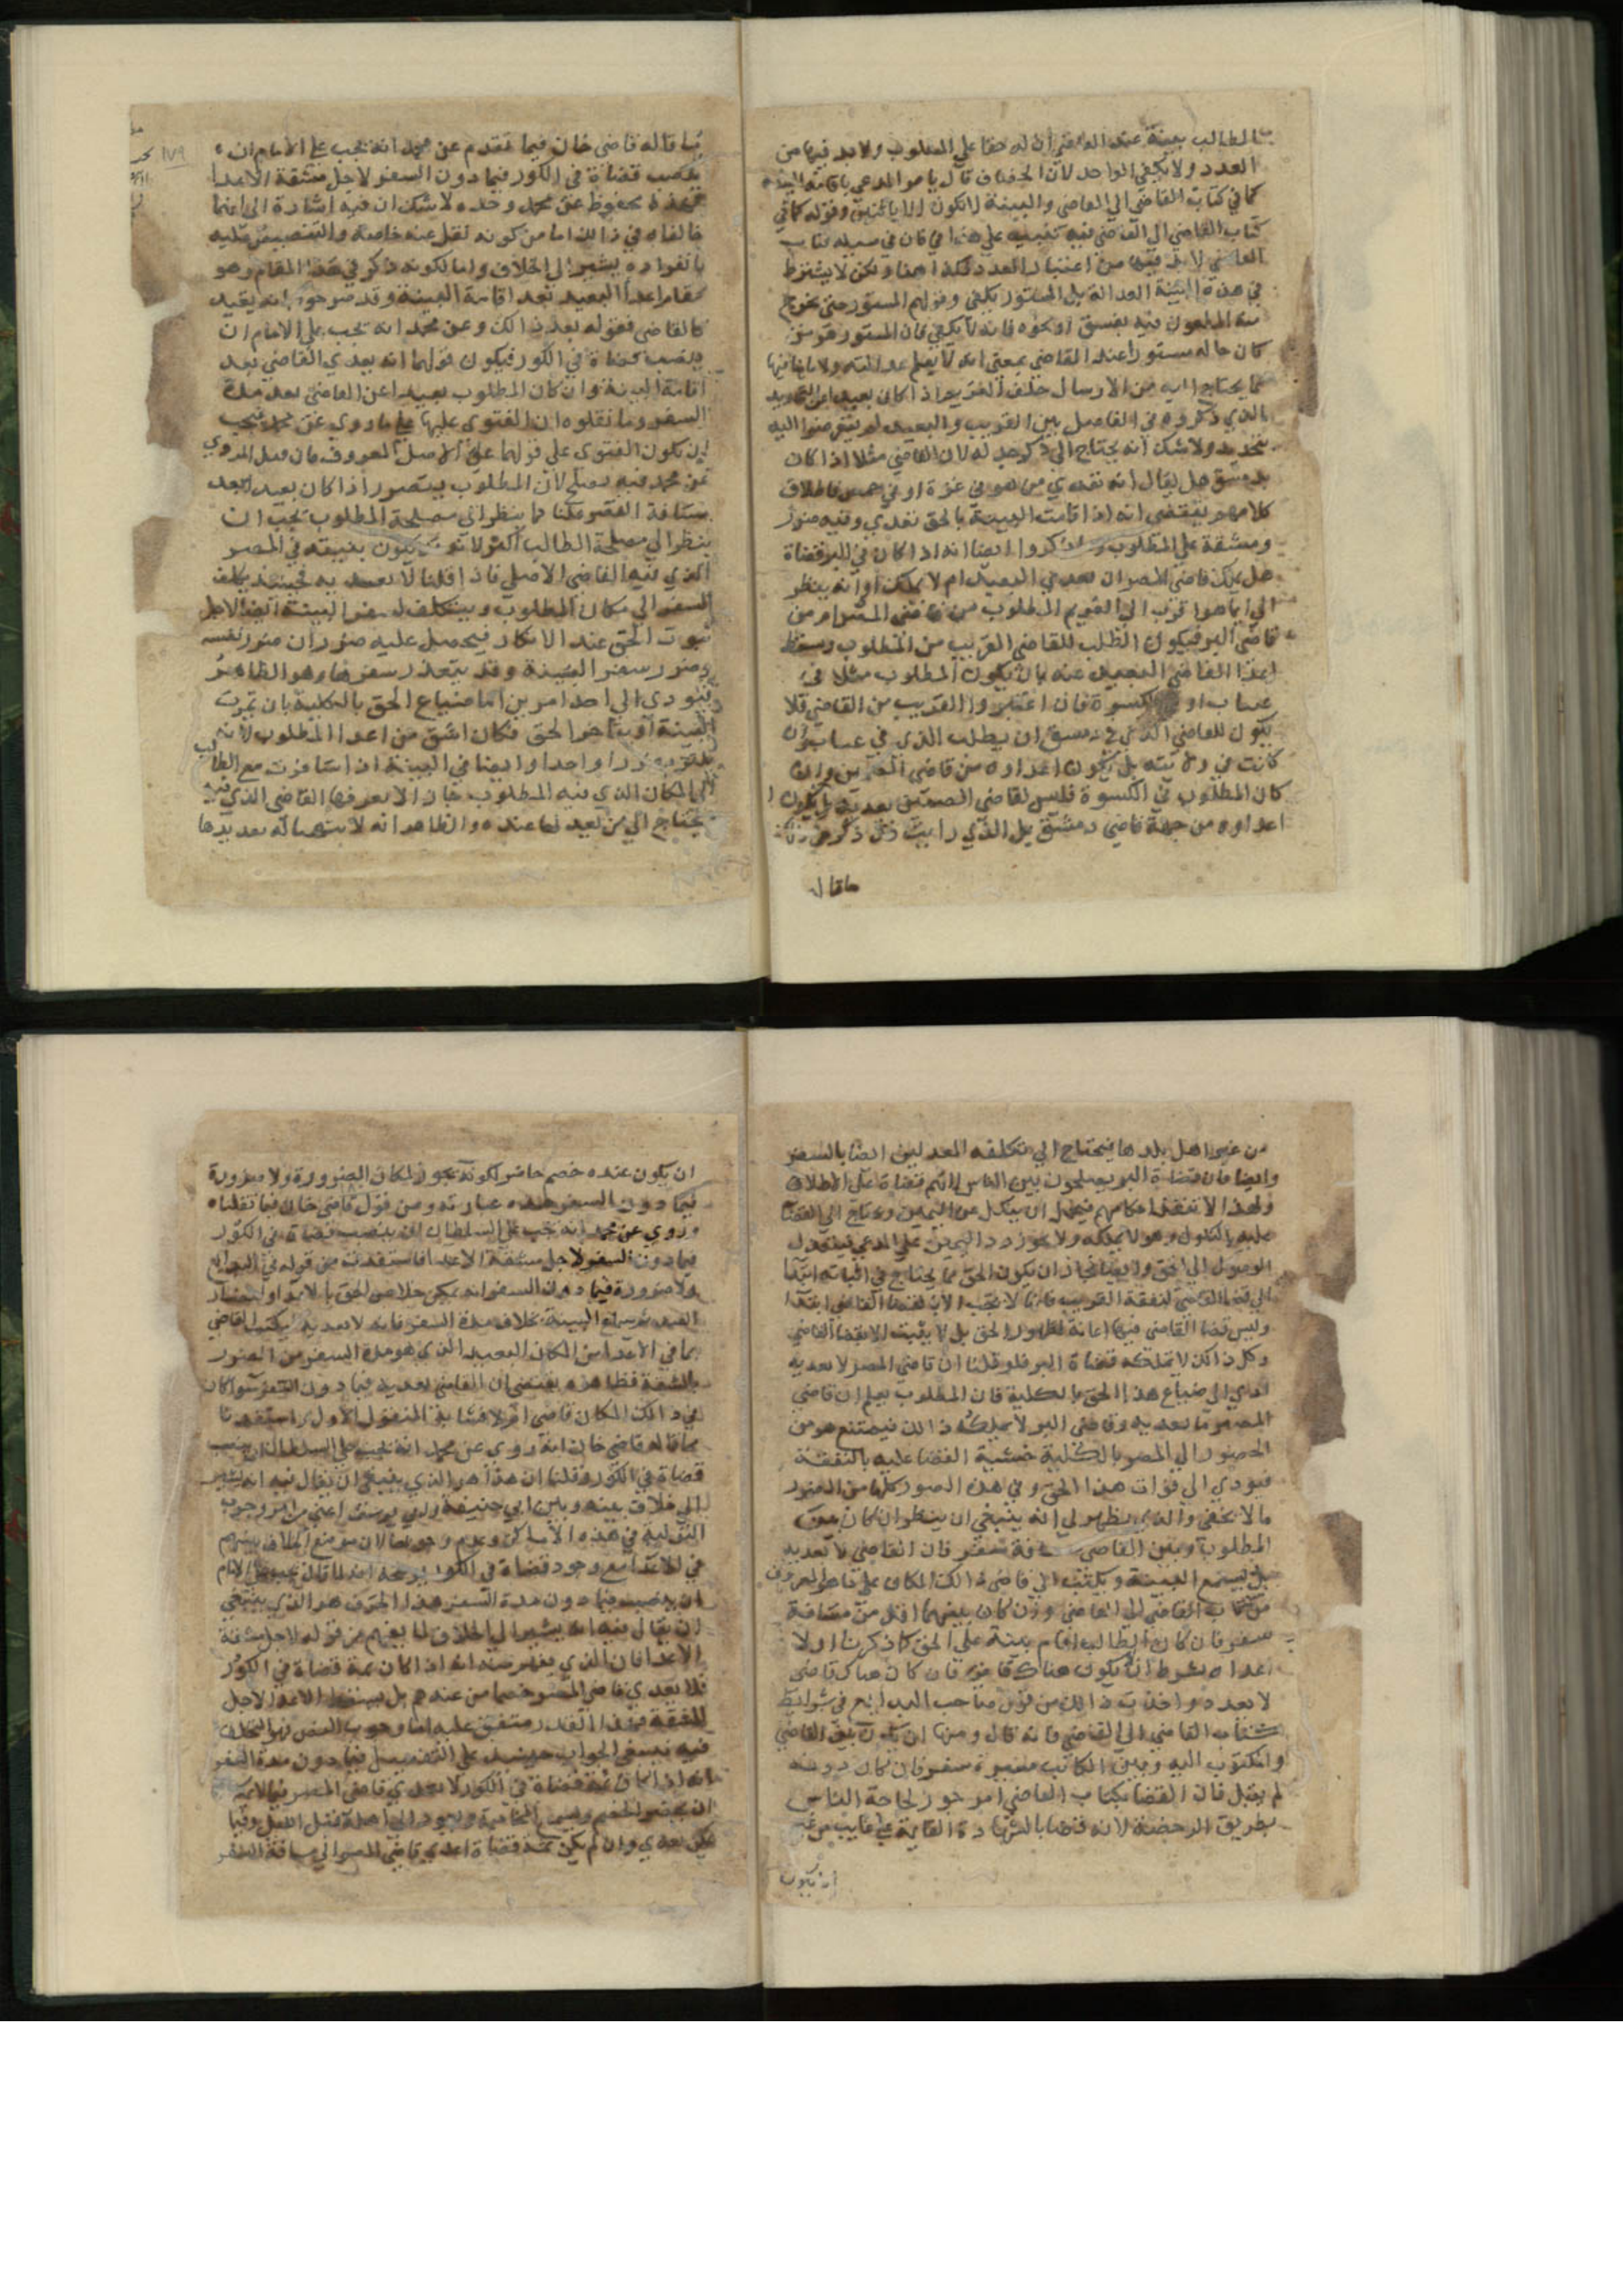 الطالب بينة عند القاضي ان له حقا علي المطلوب ولا بد فيها من
العدد ولا يكفي الواحد لان الخصاف قال يامر المدعي باقامة البينة
كما في كتاب القاضي الي القاضي والبينة لا تكون الا باثنين وقوله كما في
كتاب القاضي الي القاضي فيه تنبيه علي هذا
القاضي لا بد فيها من اعتبار العدد فكذا هنا ولكن لا يشترط
في هذه البينة العدالة بل المستور يكفي وقولهم المستور حتي يخرج
منه المطعون فيه بفسق او نحوه فانه لا يكفي فان المستور هو من
كان حاله مستورا عند القاضي بمعني انه لا يعلم عدالته ولا
مما يحتاج اليه من الارسال خلف الغريم اذا كان بعيدا
الذي ذكروه في الفاصل بين القريب والبعيد لم يتعرضوا اليه
بتحديد ولا شك انه يحتاج الي ذكر حد له لان القاضي مثلا اذا كان
بدمشق هل يقال انه تعدي من هو في غزة او في حمص فاطلاق
كلامهم يقتضي انه اذا قامت البينة بالحق تعدي وفيه ضرر
ومشقة علي المطلوب ولم يذكروا ايضا انه اذا كان في البر قضاة
هل يملك قاضي المصر ان يعدي البعيد ام لا يملك او انه ينظر
الي ايهما هو اقرب الي الغريم المطلوب من قاضي المصر ام من
قاضي البر فيكون الطلب للقاضي القريب من المطلوب
هذا القاضي البعيد عنه بان يكون المطلوب مثلا في
عسال او الكسوة فان اعتبروا القريب من القاضي فلا
يكون للقاضي الذي في دمشق ان يطلب الذي في عسال وان
كانت في ولايته بل يكون اعداوه من قاضي وان
كان المطلوب في الكسوة فليس لقاضي يعديه بل يكون
اعداوه من جهة قاضي دمشق بل الذي رايت
ما قال
ما قاله قاضي خان فيما تقدم عن محمد انه يجب علي الامام ان
ينصب قضاة في الكور فيما دون السفر لاجل مشقة الاعدا
محفوظ عن محمد وحده لا شك ان فيه اشارة الي انهما
خالفاه في ذالك اما من كونه نقل عنه خاصة والتنصيص عليه
بانفراده يشير الي الخلاف واما لكونه ذكر في هذا المقام وهو
مقام اعدا البعيد بعد اقامة البينة وقد صرحوا انه يقيد
كالقاضي فقوله بعد ذالك وعن محمد انه يجب علي الامام ان
ينصب قضاة في الكور فيكون قولهما انه يعدي القاضي بعد
اقامة البينة وان كان المطلوب بعيدا عن القاضي بعد مدة
السفر وما نقلوه ان الفتوي عليها ما روي عن محمد فيجب
ان تكون الفتوي علي قولهما علي الاصل المعروف فان قيل المروي
عن محمد فيه مصلحة لان المطلوب يتضرر اذا كان بعيدا بعد
مسافة القصر قلنا كما ينظر الي مصلحة المطلوب يجب ان
ينظر الي مصلحة الطالب اكثر لانه يكون بغيبته في المصر
الذي فيه القاضي الاصلي فاذا قلنا لا يعديه فحينئذ يكلف
السفر الي مكان المطلوب ويتكلف لسفر البينة ايضا لاجل
ثبوت الحق عند الانكار فيحصل عليه ضرران ضرر نفسه
وضرر سفر البينة وقد يتعذر سفرها وهو الظاهر
فيودي الي احد امرين اما ضياع الحق بالكلية بان تموت
البينة او تاخر الحق فكان اشق من اعدا المطلوب لانه
ضررا واحدا وايضا في البينة اذا سافرت مع الطالب
الي المكان الذي فيه المطلوب جاز ان لا يعرفها القاضي الذي فيه
يحتاج الي من يعدلها عنده والظاهر انه لا يتهيا له تعديلها
من غير اهل بلدها فيحتاج الي تكلفه المعدلين ايضا بالسفر
وايضا فان قضاة البر يصلحون بين الناس لا انهم قضاة علي الاطلاق
ولهذا لا تنفذ احكامهم فيحتمل ان ينكل عن اليمين ويحتاج الي القضا
عليه بالنكول وهو لا يملكه ولا يجوز رد اليمين علي المدعي فيتعذر
الوصول الي الحق وايضا جاز ان يكون الحق مما يحتاج في اثباته ابتدا
الي قضا القاضي كنفقة القريب فانها لا تجب الا بقضا القاضي ابتدا
وليس قضا القاضي فيها اعانة لظهور الحق بل لا يثبت الا بقضا القاضي
وكل ذالك لا تملكه قضاة البر فلو قلنا ان قاضي المصر لا يعديه
ادي الي ضياع هذا الحق بالكلية فان المطلوب يعلم ان قاضي
المصر ما يعديه وقاضي البر لا يملك ذالك فيمتنع هو من
الحضور الي المصر بالكلية خشية القضا عليه بالنفقة
فيودي الي فوات هذا الحق وفي هذه الصور كلها من الضرر
ما لا يخفي والذي يظهر لي انه ينبغي ان ينظر ان كان بين
المطلوب وبين القاضي مسافة سفر فان القاضي لا يعديه
بل يسمع البينة ويكتب الي قاضي ذالك المكان علي ما هو المعروف
من كتاب القاضي الي القاضي وان كان بينهما اقل من مسافة
سفر فان كان الطالب اقام بينة علي الحق كما ذكرنا اولا
اعداه بشرط ان لا يكون هناك قاض فان كان هناك قاضي
لا يعديه واخذت ذالك من قول صاحب البدايع في شرايط
كتاب القاضي الي القاضي فانه قال ومنها ان يكون بين القاضي
والمكتوب اليه وبين الكاتب مسيرة سفر فان كان دونه
لم يقبل فان القضا بكتاب القاضي امر جوز لحاجة الناس
بطريق الرخصة لانه قضا بالشهادة القايمة علي غايب من غير
ان يكون
ان يكون عنده خصم حاضر لكونه يجوز لمكان الضرورة ولا ضرورة
فيما دون السفر هذه عبارته ومن قول قاضي خان فيما نقلناه
وروي عن محمد انه يجب علي السلطان ان ينصب قضاة في الكور
فيما دون السفر لاجل مشقة الاعدا فاستفدت من قوله في البدايع
ولا ضرورة فيما دون السفر انه يمكن خلاص الحق
بخلاف مدة السفر فانه لا يعديه بل يكتب القاضي
بما في الاعدا من المكان البعيد الذي هو مدة السفر من الضرر
والمشقة فظاهره يقتضي ان القاضي يعديه فيما دون السفر سوا كان
في ذالك المكان قاضي ام لا
بما قاله قاضي خان انه روي عن محمد انه يجب علي السلطان ان ينصب
قضاة في الكور وقلنا ان هذا هو الذي ينبغي ان يقال فيه انه يشير
الي خلاف بينه وبين ابي حنيفة وابي يوسف اعني من وجوب
التولية في هذه الاماكن وعدم وجوبها لان موضع الخلاف بينهم
في الاعدا مع وجود قضاة في الكور
ان ينصب فيما دون مدة السفر هذا الحرف هو الذي ينبغي
ان يقال فيه انه يشير الي الخلاف لما يفهم من قوله لاجل مشقة
الاعدا فان الذي يفهم منه انه اذا كان ثمة قضاة في الكور
فلا يعدي قاضي المصر خصما من عندهم بل يسقط الاعدا لاجل
المشقة فهذا القدر متفق عليه اما وجوب النصب فهو المختلف
فيه فبقي الجواب حينئذ علي التفصيل فيما دون مدة السفر
انه اذا كان ثمة قضاة في الكور لا يعدي قاضي المصر
ان يحضر الخصم ويعود الي اهله قبل الليل
يعدي وان لم يكن ثمة قضاة اعدي قاضي المصر الي مسافة السفر